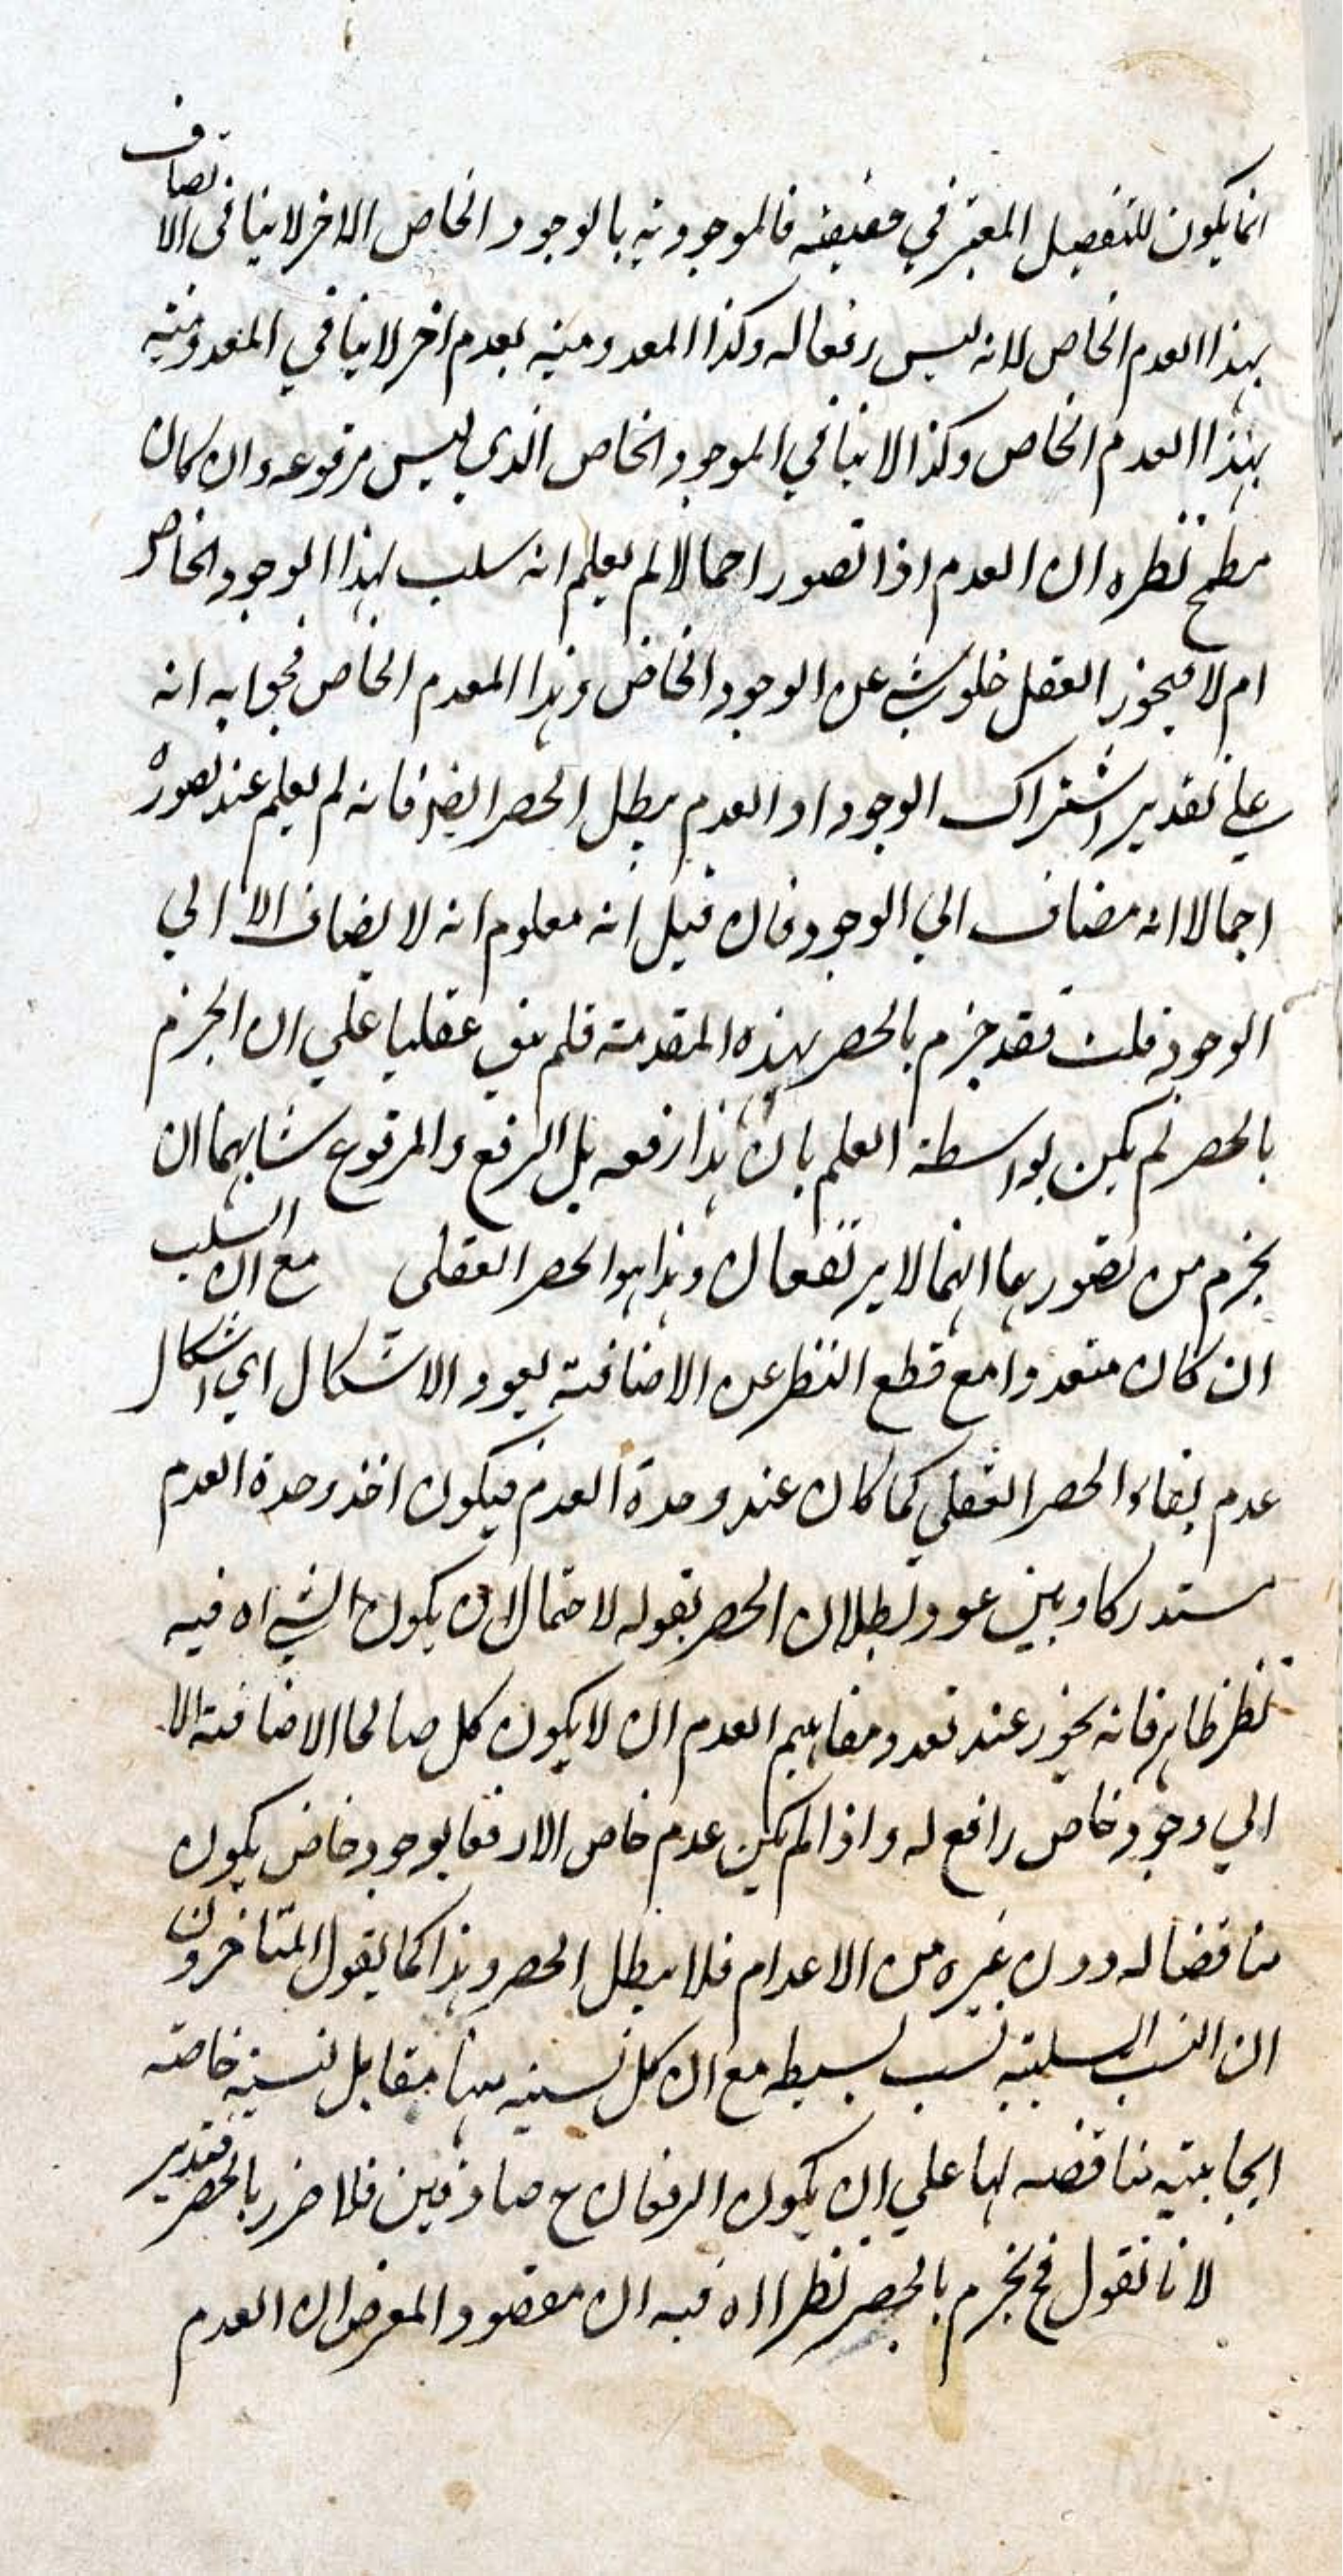 انما يكون للتفصيل المعتبر في حقيقته فالموجودية بالوجود الخاص الاخر لا ينافي الاتصاف
بهذا العدم الخاص لانه ليس رفعا له وكذا المعدومية بعدم اخر لا ينافي المعدومية
بهذا العدم الخاص وكذا لا ينافي الموجود الخاص الذي ليس مرفوعه وان كان
مطمح نظره ان العدم اذا تصور اجمالا لم يعلم انه سلب لهذا الوجود الخاص
ام لا فيجوز العقل خلو شيء عن الوجود الخاص وهذا العدم الخاص فجوابه انه
على تقدير اشتراك الوجود او العدم يبطل الحصر ايضا فانه لم يعلم عند تصوره
اجمالا انه مضاف الي الوجود فان قيل انه معلوم انه لا يضاف الا الي
الوجود قلت فقد جزم بالحصر بهذه المقدمة فلم يبق عقليا علي ان الجزم
بالحصر لم يكن بواسطة العلم بان هذا رفعه بل الرفع والمرفوع شانهما ان
يجزم من تصورهما انهما لا يرتفعان وهذا هو الحصر العقلي مع ان السلب
ان كان متعددا مع قطع النظر عن الاضافة يعود الاشكال اي اشكال
عدم بقاء الحصر العقلي كما كان عند وحدة العدم فيكون اخذ وحدة العدم
مستدركا وبين عود بطلان الحصر بقوله لاحتمال ان يكون الشي اه فيه
نظر ظاهر فانه يجوز عند تعدد مفاهيم العدم ان لا يكون كل صالحا الاضافة الا
الي وجود خاص رافع له واذا لم يكن عدم خاص الا رفعا لوجود خاص يكون
مناقضا له دون غيره من الاعدام فلا يبطل الحصر وهذا كما يقول المتاخرون
ان النسب السلبية نسب بسيطه مع ان كل نسبة منها مقابل لنسبة خاصة
ايجابية مناقضه لها علي ان يكون الرفعان ع صادقين فلا ضرر بالحصر فتدبر
لانا نقول فح نجزم بالحصر نظرا اه فيه ان مقصود المعرض ان العدم